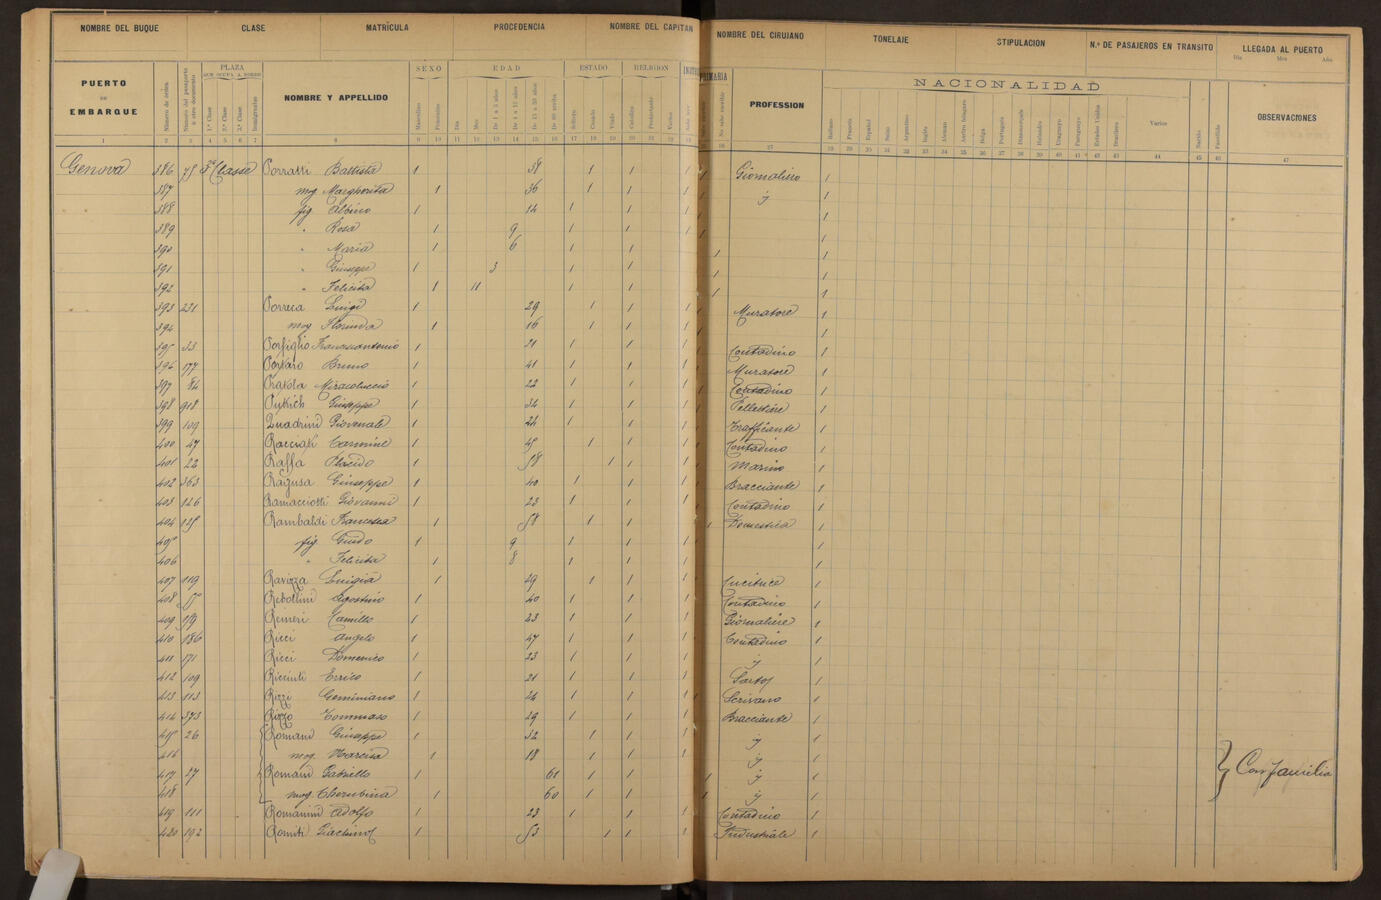 NOMBRE DEL BUQUE CLASE MATRÍCULA PROCEDENCIA NOMBRE DEL CAPITÁN NOMBRE DEL CIRUJANO TONELAJE STIPULACION N.º DE PASAJEROS EN TRANSITO LLEGADA AL PUERTO
Dia Mes Año
PUERTO DE EMBARQUE Número de órden Número del pasaporte ú otro documento PLAZA QUE OCUPA A BORDO 1.ª Clase 2.ª Clase 3.ª Clase Inmigrantes NOMBRE Y APPELLIDO SEXO Masculino Femenino EDAD Dia Mes De 1 a 3 años De 4 a 12 años De 13 a 59 años De 60 arriba ESTADO Soltero Casado Viudo RELIGION Católico Protestante Varios PRIMARIA No sabe escribir PROFESSION NACIONALIDAD Italiano Francés Español Suizo Argentino Inglés Alemán Austro húngaro Belga Portugués Dinamarqués Holandés Uruguayo Paraguayo Estados Unidos Brasilero Varios OBSERVACIONES
Genova 386 75 3ª Classe Porratti Battista 1 38 1 1 1 1 Giornalino 1
387 mog Margherita 1 36 1 1 1 1 ij 1
388 fig Albino 1 14 1 1 1 1 1
389 " Rosa 1 9 1 1 1 1 1
390 " Maria 1 6 1 1 1 1
391 " Giuseppe 1 3 1 1 1 1
392 " Felicita 1 11 1 1 1 1
393 231 Porreca Luigi 1 29 1 1 1 Muratore 1
394 mog Florinda 1 16 1 1 1 1
395 33 Porfiglio Francescantonio 1 21 1 1 1 Contadino 1
396 177 Portaro Bruno 1 41 1 1 1 Muratore 1
397 84 Pratola Miracoluccio 1 22 1 1 1 Contadino 1
398 918 Giuseppe 1 34 1 1 1 Pellettiere 1
399 109 Quadrini Giovenale 1 24 1 1 1 Trafficante 1
400 47 Carmine 1 45 1 1 1 Contadino 1
401 22 Raffa Placido 1 58 1 1 1 Marino 1
402 363 Ragusa Giuseppe 1 40 1 1 1 Bracciante 1
403 126 Ramacciotti Giovanni 1 23 1 1 1 Contadino 1
404 125 Rambaldi Francesca 1 58 1 1 1 Domestica 1
405 fig Guido 1 9 1 1 1
406 " Felicita 1 8 1 1 1
407 119 Ravizza Luigia 1 29 1 1 1 Cucitrice 1
408 55 Rebollini Agostino 1 40 1 1 1 Contadino 1
409 Camillo 1 23 1 1 1 Giornaliere 1
410 186 Ricci Angelo 1 47 1 1 1 Contadino 1
411 171 Ricci Domenico 1 23 1 1 1 ij 1
412 109 Ricciuti Errico 1 21 1 1 1 Sarto 1
413 113 Rizzi Geminiano 1 24 1 1 1 Scrivano 1
414 373 Rizzo Tommaso 1 29 1 1 1 Bracciante 1
415 26 Romani Giuseppe 1 32 1 1 1 ij 1
416 mog. Narcisa 1 18 1 1 1 ij 1
417 27 Romani Gabriello 1 61 1 1 1 ij 1 Con familia
418 mog Cherubina 1 60 1 1 1 ij 1
419 111 Romanini Adolfo 1 23 1 1 1 Contadino 1
420 192 Romiti Giachino 1 53 1 1 1 Industriale 1